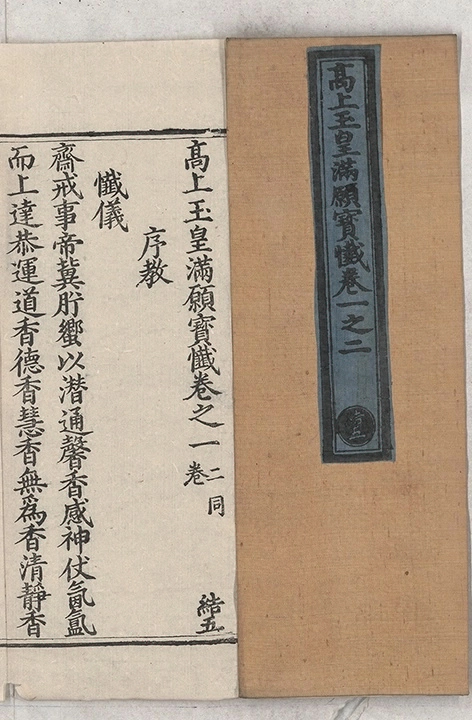 髙上玉皇滿願寳懺卷一之二
髙上玉皇滿願寳懺卷之一 二同卷 結五
序教
懺儀
齋戒事帝冀肹蠁以潜通馨香感神伏氤氲
而上達恭運道香德香慧香無爲香清靜香